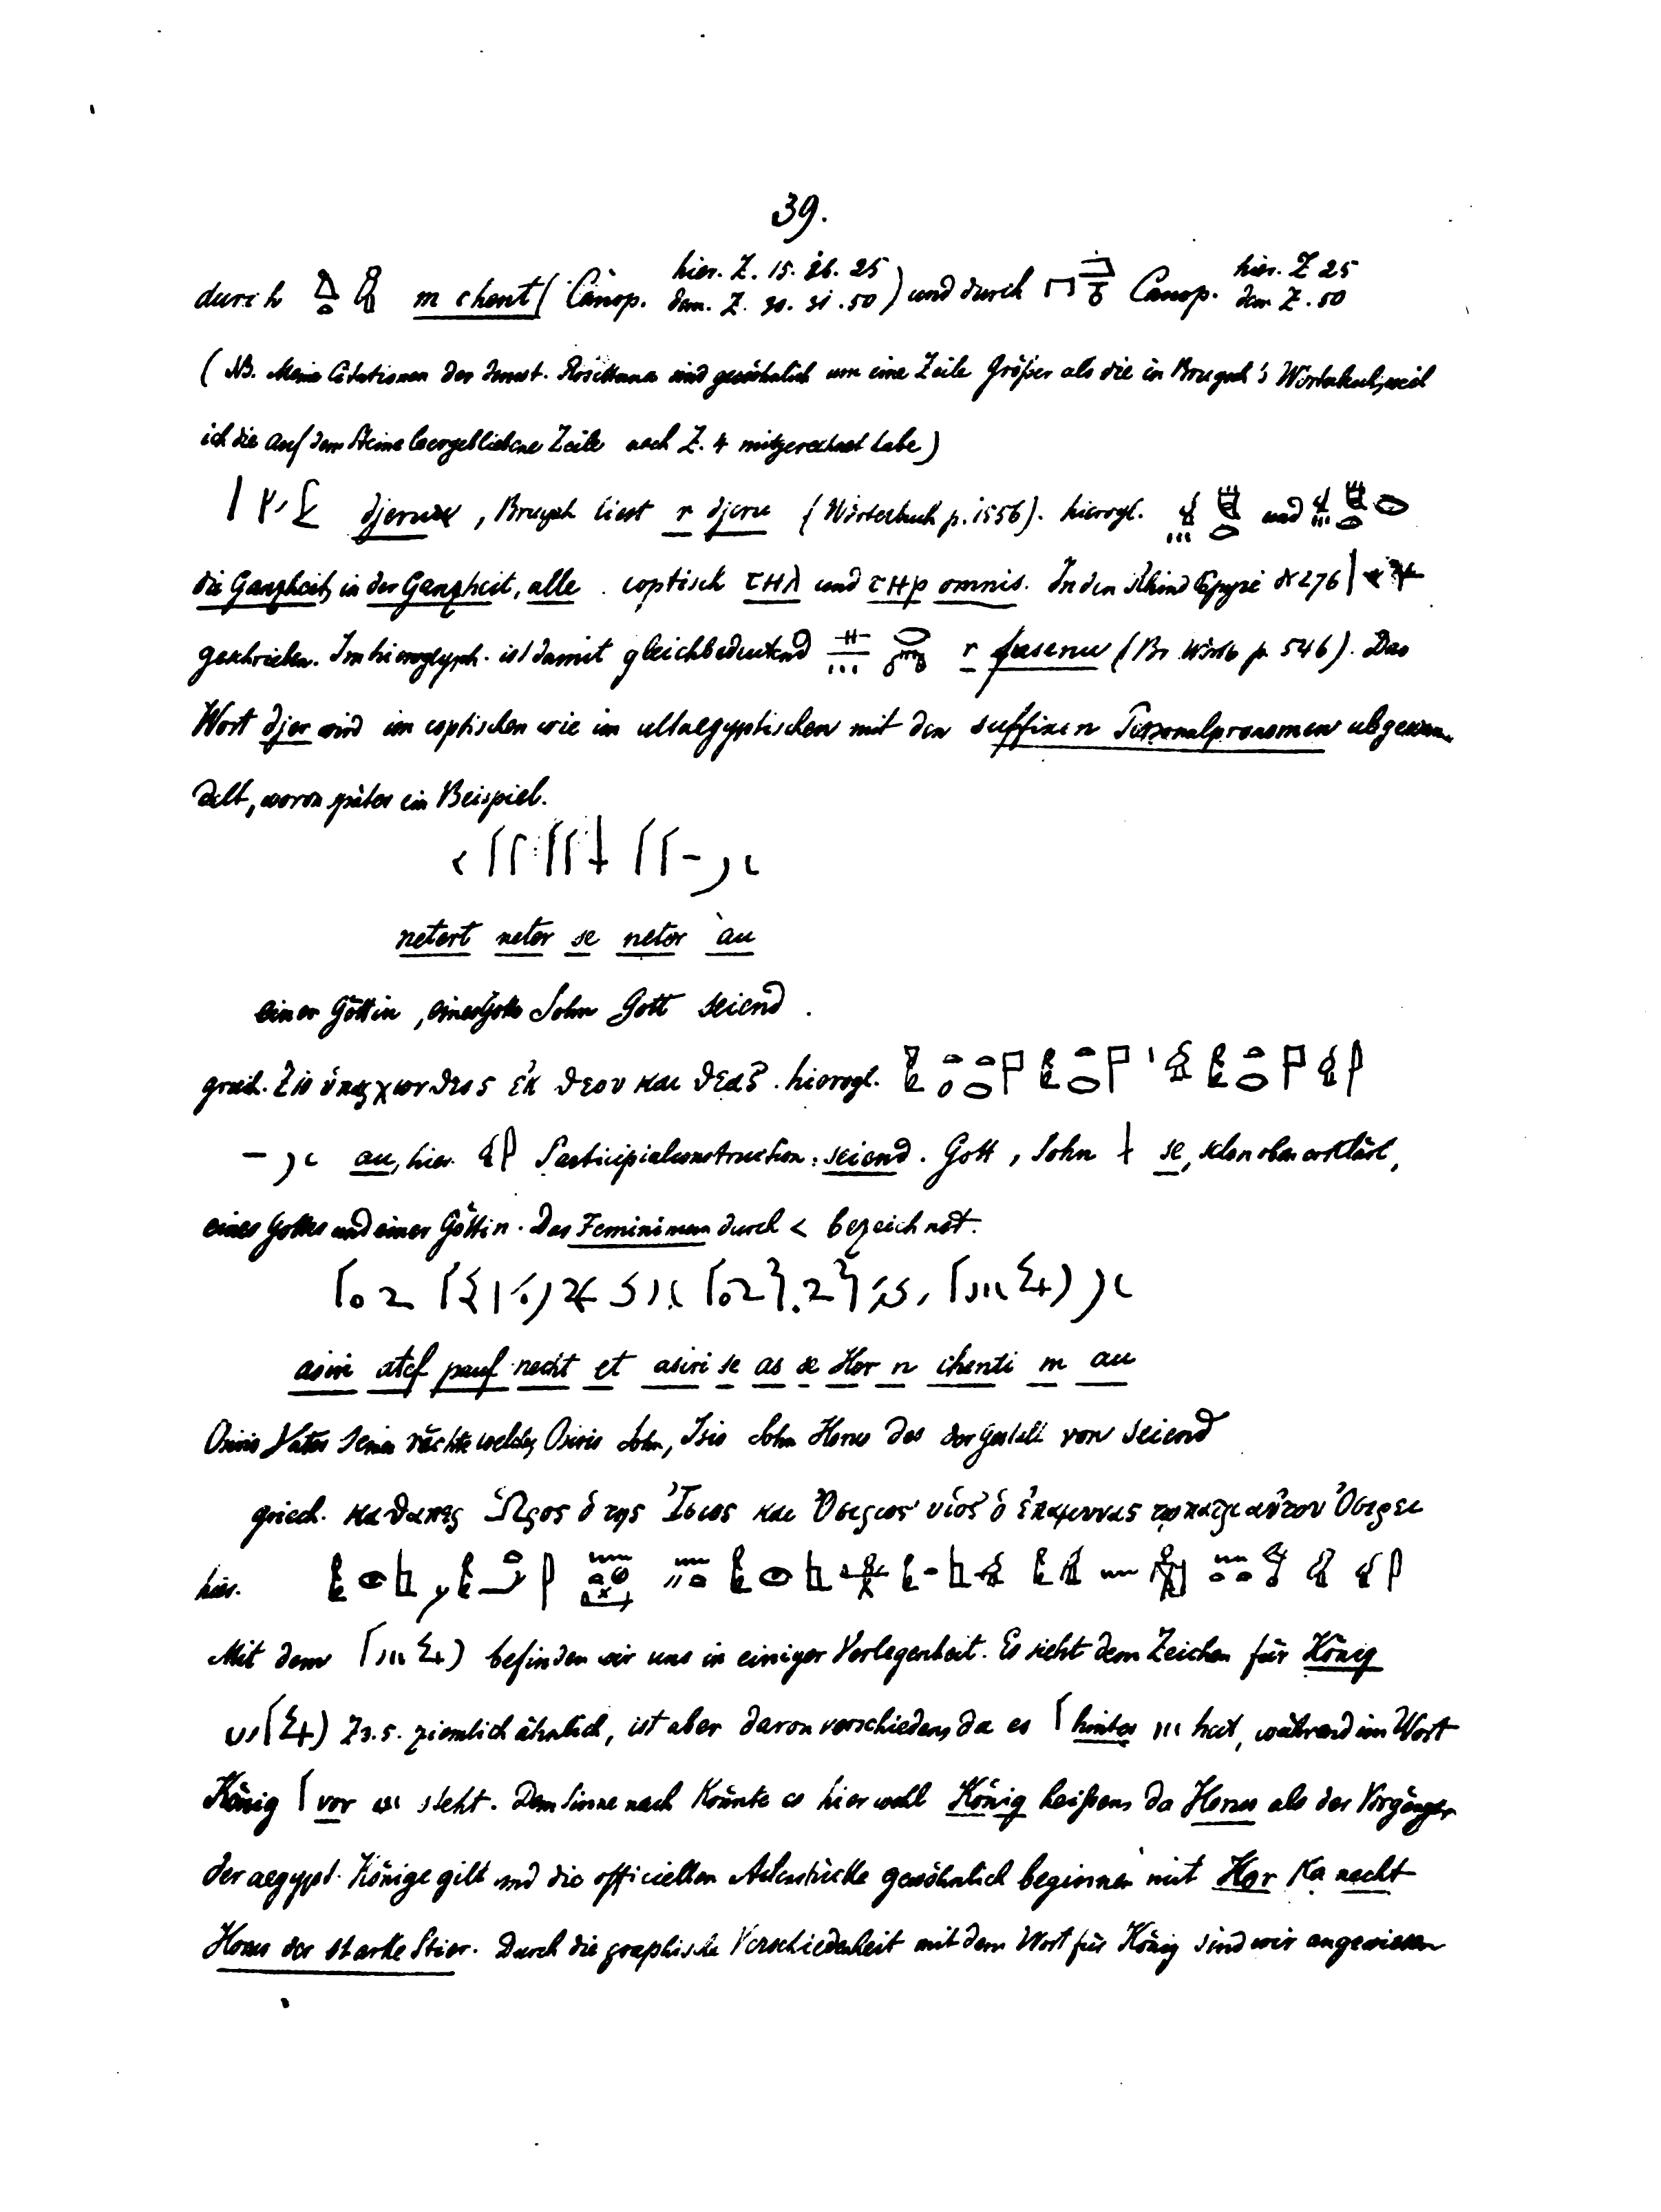 39.
durch m chent (Canop. hier. Z. 15. 26. 25 dem. Z. 30. 31. 50) und durch Canop. hier. Z 25 dem Z. 50
(NB. Meine Citationen der demot. Rosettana sind gewöhnlich um eine Zeile größer als die in Brugsch's Wörterbuch, weil
ich die auf dem Steine leergebliebene Zeile nach Z. 4 mitgerechnet habe)
djeru, Brugsch liest r djeru (Wörterbuch p. 1556). hierogl. und
die Ganzheit, in der Ganzheit, alle. coptisch ⲧⲏⲗ und ⲧⲏⲣ omnis. In den Rhind Papyri № 276
geschrieben. Im hieroglyph. ist damit gleichbedeutend r (Br. Wörtb p. 546). Das
Wort djer wird im coptischen wie im altaegyptischen mit den suffixen Personalpronomen abgewan-
delt, wovon später ein Beispiel.
netert neter se neter àu
einer Göttin, eines Gottes Sohn Gott seiend.
griech. ὑπαρχων θεος ἐκ θεου και θεας. hierogl.
au, hier. Participialconstruction: seiend. Gott, Sohn se, schon oben erklärt,
eines Gottes und einer Göttin. Das Femininum durch < bezeichnet.
asiri atef pauf necht et asiri se as se Hor n chenti m au
Osiris Vater seiner rächte welcher Osiris Sohn, Isis Sohn Horus des der Gestalt von seiend
griech. καθαπερ Ὡρος ὁ της Ἰσιος και Ὀσιριος υἱος ὁ ἐπαμυνας τῳ πατρι αὐτου Ὀσιρει
hier.
Mit dem befinden wir uns in einiger Verlegenheit. Es sieht dem Zeichen für König
Z3.5. ziemlich ähnlich, ist aber davon verschieden, da es hinter hat, während im Wort
König vor steht. Dem Sinne nach könnte es hier wohl König heißen, da Horus als der Vorgänger
der aegypt. Könige gilt und die officiellen Actenstücke gewöhnlich beginnen mit Hor Ka necht
Horus der starke Stier. Durch die graphische Verschiedenheit mit dem Wort für König sind wir angewiesen